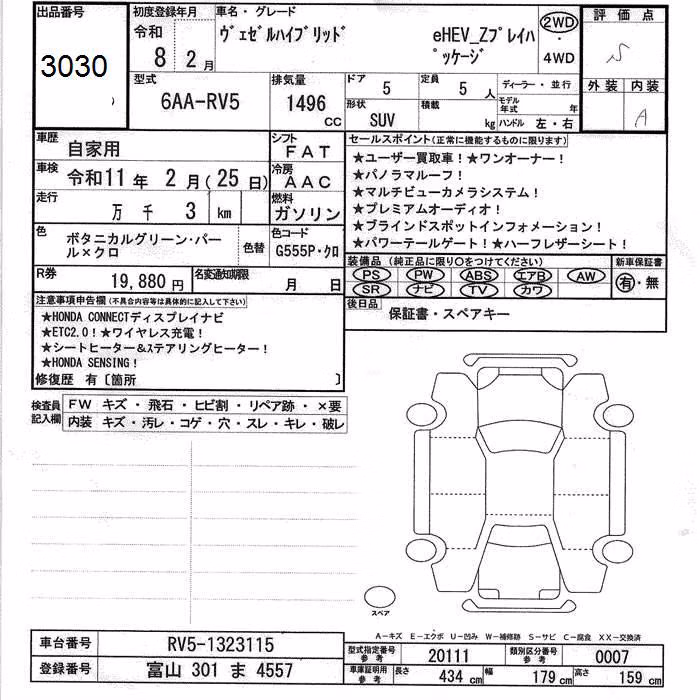 出品番号
3030
初度登録年月
令和
8 2月
車名・グレード
ヴェゼルハイブリッド eHEV_Zプレイパ
ッケージ
2WD
・
4WD
評価点
S
外装 内装
A
型式
6AA-RV5
排気量
1496 cc
ドア 5
定員 5人
形状
SUV
積載 kg
ディーラー・並行
モデル年式 年
ハンドル 左・右
車歴 自家用
シフト FAT
車検 令和11年 2月(25日)
冷房 AAC
走行 万 千 3 km
燃料 ガソリン
色 ボタニカルグリーン・パー
ル×クロ
色替
色コード
G555P・クロ
R券 19,880円
名変通知期限 月 日
セールスポイント(正常に機能するものに限ります)
★ユーザー買取車!★ワンオーナー!
★パノラマルーフ!
★マルチビューカメラシステム!
★プレミアムオーディオ!
★ブラインドスポットインフォメーション!
★パワーテールゲート!★ハーフレザーシート!
装備品(純正品に限り○をつけてください)
PS PW ABS エアB AW
SR ナビ TV カワ
新車保証書
有・無
後日品
保証書・スペアキー
注意事項申告欄(不具合内容等は具体的に記入して下さい)
★HONDA CONNECTディスプレイナビ
★ETC2.0!★ワイヤレス充電!
★シートヒーター&ステアリングヒーター!
★HONDA SENSING!
修復歴 有〔箇所 〕
検査員記入欄
FW キズ・飛石・ヒビ割・リペア跡・×要
内装 キズ・汚レ・コゲ・穴・スレ・キレ・破レ
スペア
A-キズ E-エクボ U-凹み W-補修跡 S-サビ C-腐食 XX-交換済
車台番号 RV5-1323115
登録番号 富山 301 ま 4557
型式指定番号 参考 20111
類別区分番号 参考 0007
車庫証明用 参考 長さ 434 cm 幅 179 cm 高さ 159 cm